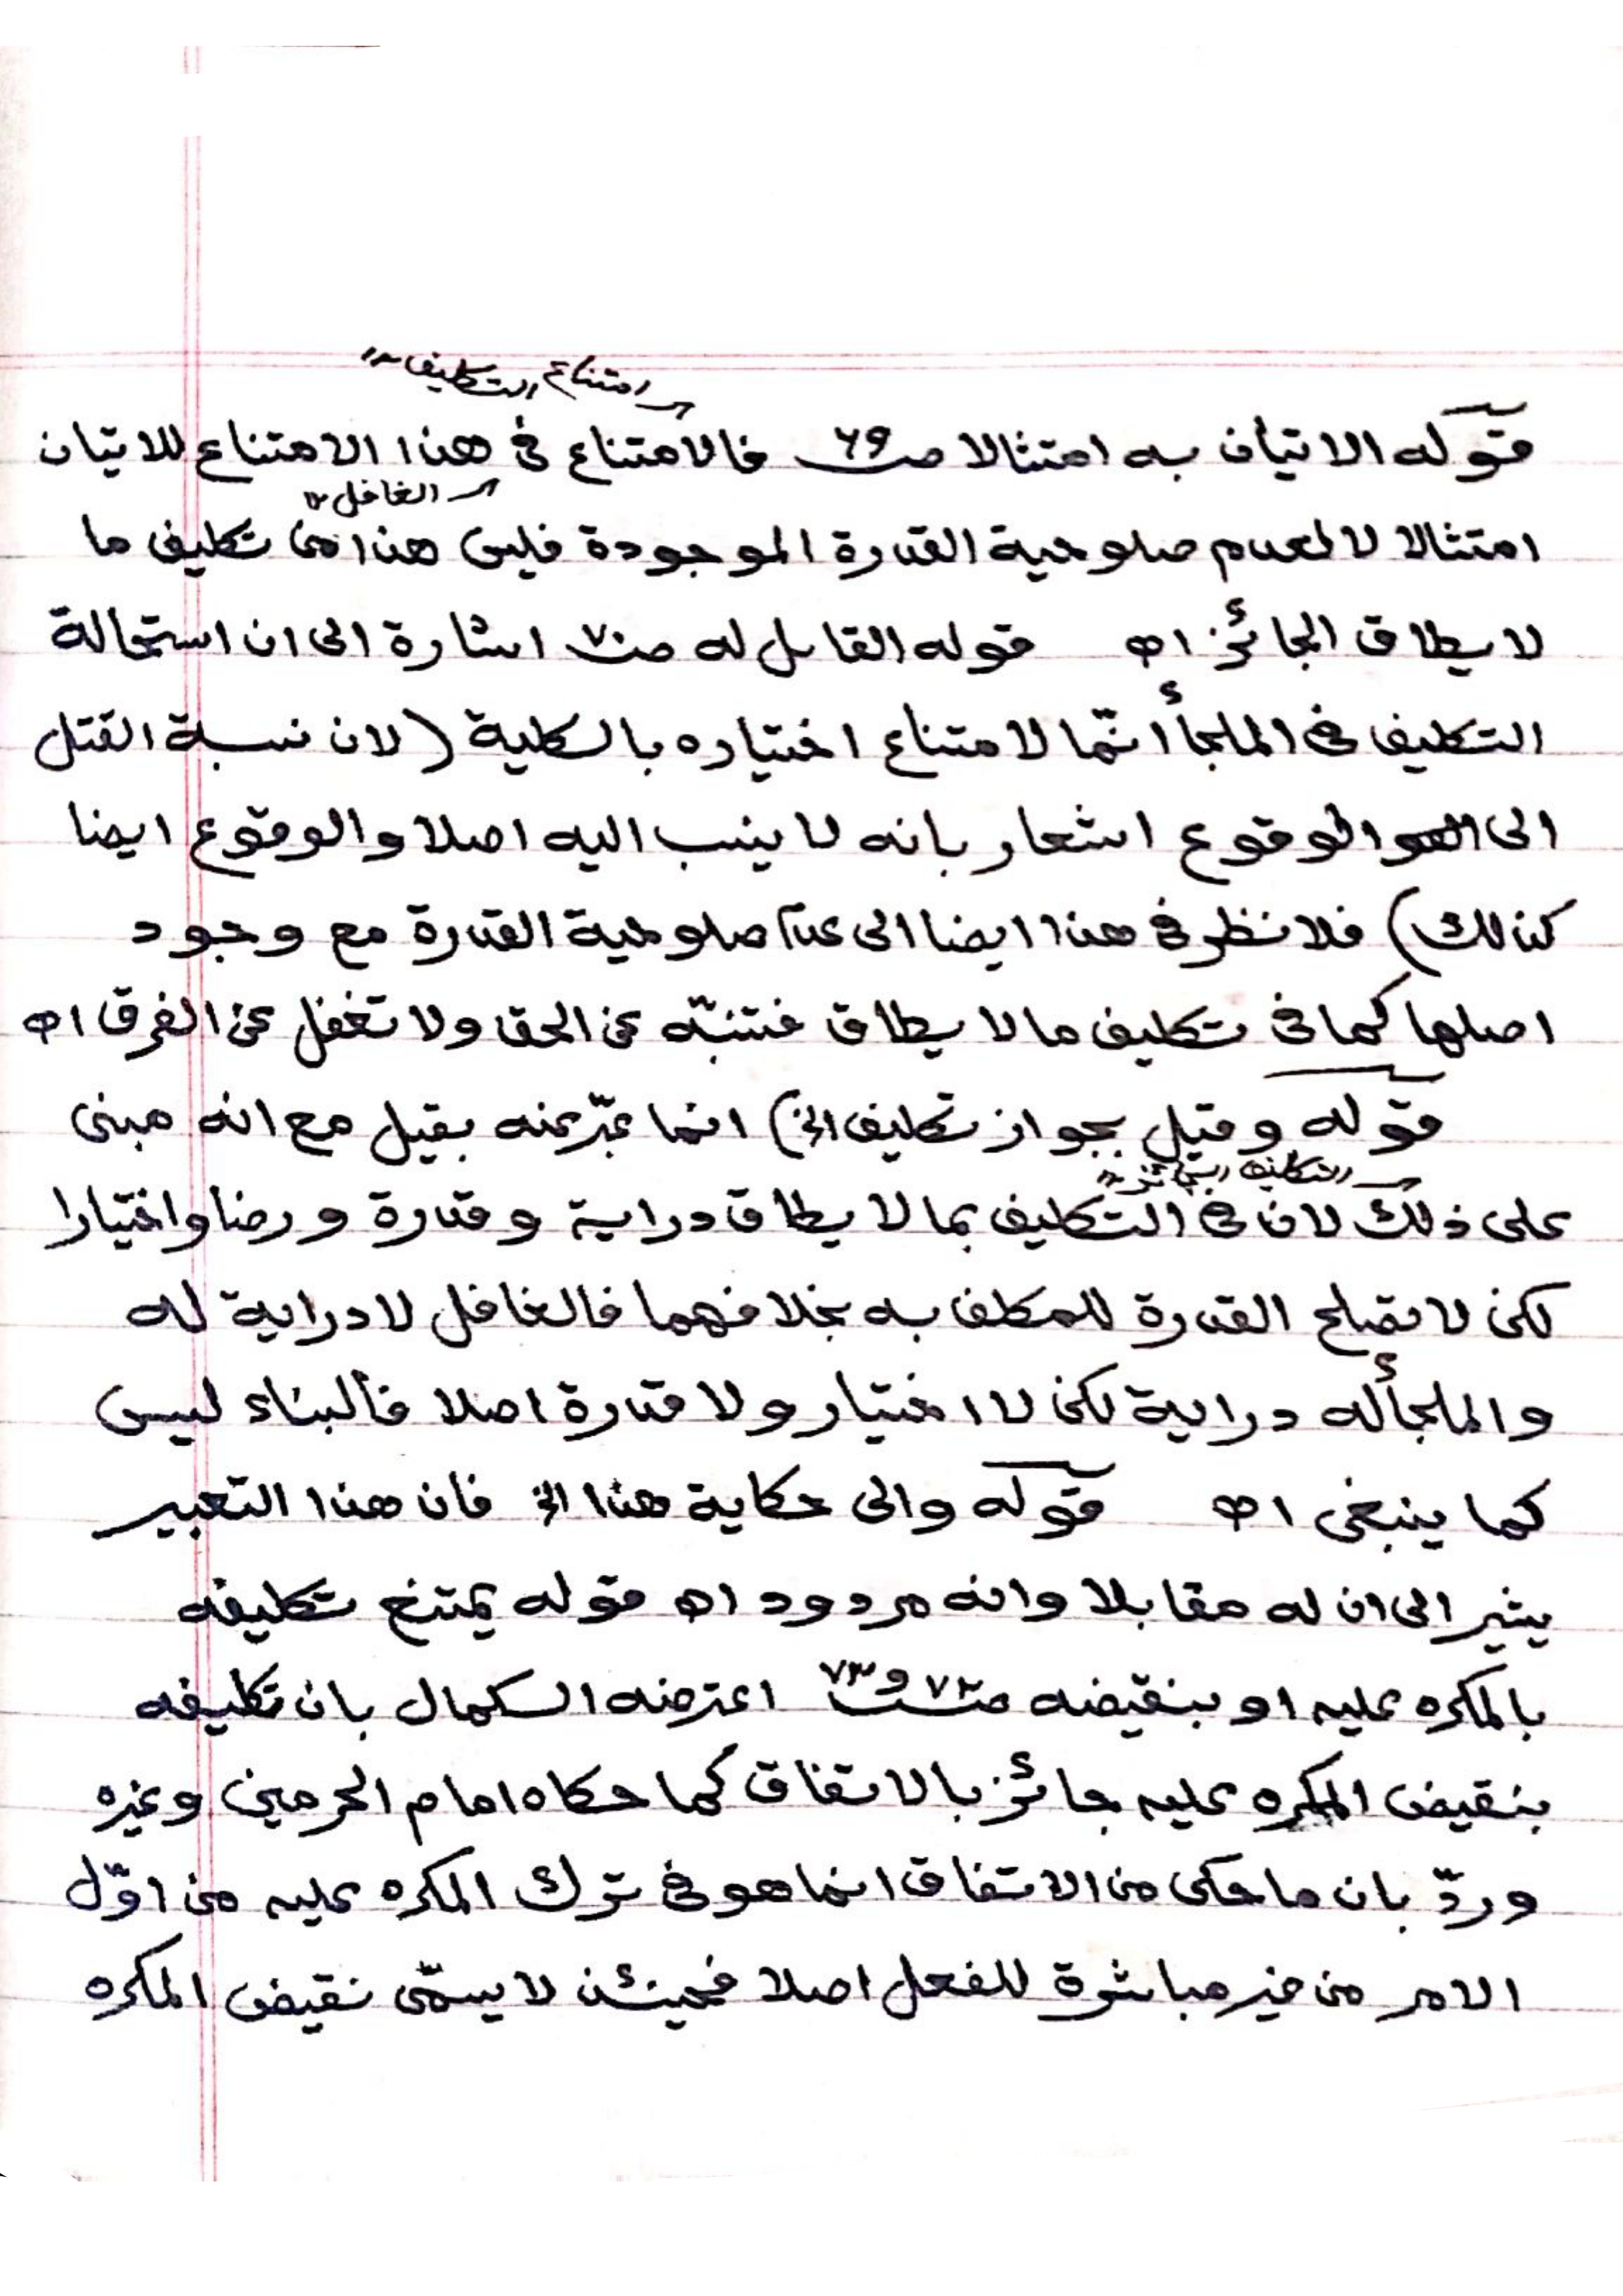 امتناع التكليف ١٢
قوله الاتيان به امتثالا صـ ٦٩ فالامتناع في هذا الامتناع للاتيان
الغافل ١٢
امتثالا لا لعدم صلوحية القدرة الموجودة فليس هذا من تكليف ما
لا يطاق الجائز اھ قوله القاتل له صـ ٧٠ اشارة الى ان استحالة
التكليف في الملجأ انّما لامتناع اختياره بالكلية (لان نسبة القتل
الى الوقوع اشعار بانه لا ينسب اليه اصلا والوقوع ايضا
كذلك) فلا نظر في هذا ايضا الى عدم صلوحية القدرة مع وجود
اصلها كما في تكليف ما لا يطاق فتنبّه عن الحق ولا تغفل عن الفرق اھ
قوله وقيل بجواز تكليف الخ) انما عبّر عنه بقيل مع انه مبنى
التكليف الجائز ١٢
على ذلك لان في التكليف بما لا يطاق دراية وقدرة ورضا واختيارا
لكن لا تصلح القدرة للمكلف به بخلافهما فالغافل لا دراية له
والملجأ له دراية لكن لا اختيار ولا قدرة اصلا فالبناء ليس
كما ينبغى اھ قوله والى حكاية هذا الخ فان هذا التعبير
يشير الى ان له مقابلا وانه مردود اھ قوله يمتنع تكليفه
بالمكره عليه او بنقيضه صـ ٧٢ و ٧٣ اعترضه الكمال بان تكليفه
بنقيض المكره عليه جائز بالاتفاق كما حكاه امام الحرمين وغيره
وردّ بان ما حكى من الاتفاق انما هو في ترك المكره عليه من اوّل
الامر من غير مباشرة للفعل اصلا فحينئذ لا يسمّى نقيض المكره